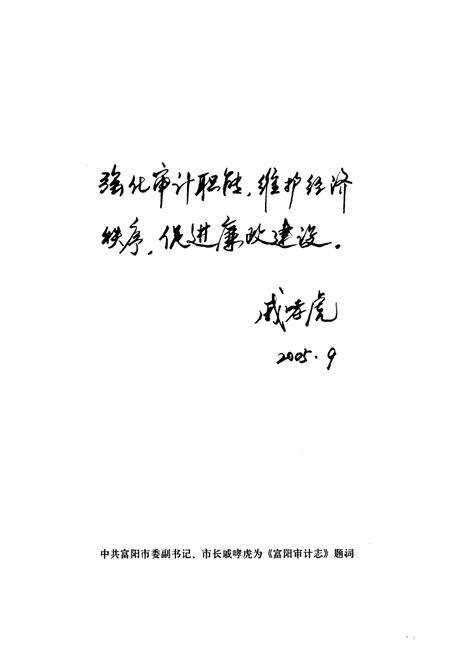 强化审计职能，维护经济
秩序，促进廉政建设。
戚哮虎
2005.9
中共富阳市委副书记、市长戚哮虎为《富阳审计志》题词